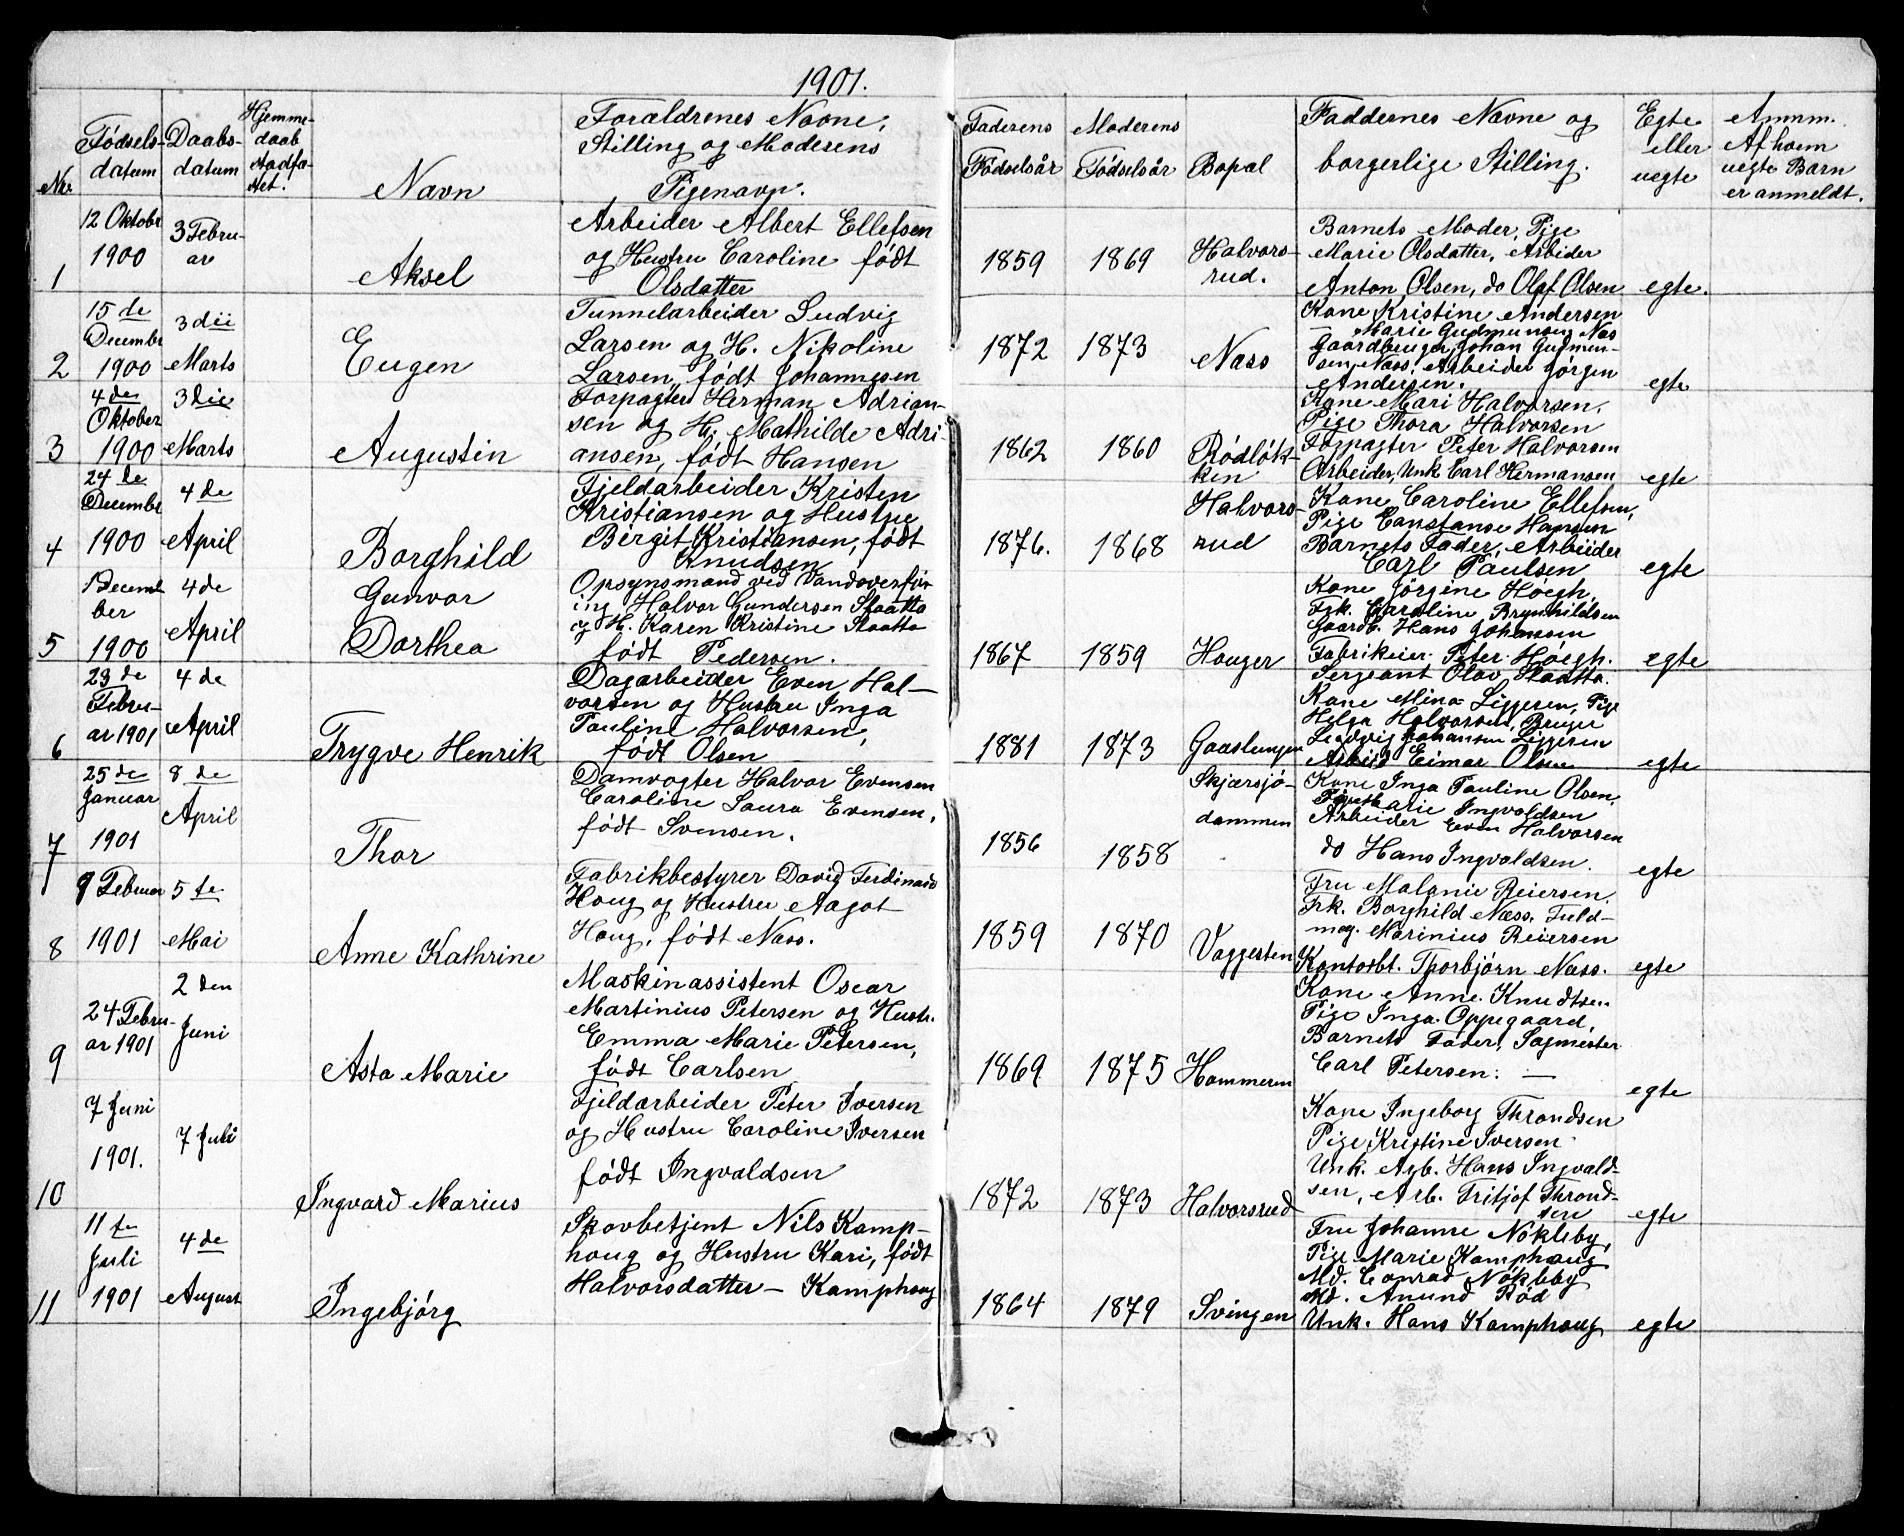 1901.
Nr.
Fødsels-
datum
Daabs-
datum
Hjemme-
daab
Stadfæ-
stet.
Navn
Forældrenes Navne,
Stilling og Moderens
Pigenavn.
Faderens
Fødselsår
Moderens
Fødselsår
Bopæl
Faddernes Navne og
borgerlige Stilling.
Egte
eller
uegte
Anmm.
Af hvem
uegte Barn
er anmeldt.
1
12 Oktobr
1900
3 Febru-
ar
Aksel
Arbeider Albert Ellefsen
og Hustru Caroline født
Olsdatter
1859
1869
Halvors-
rud.
Barnets Moder, Pige
Marie Olsdatter, Arbeider
Anton Olsen, do Olaf Olsen
egte.
2
15 de
Decembr
1900
3 die
Marts
Eugen
Tunnelarbeider Ludvig
Larsen og H. Nikoline
Larsen, født Johannesen
1872
1873
Næss
Kone Kristine Andersen
— Marie Gudmunsen, Næs
Gaardbruger Johan Gudmun-
sen, Næss, Arbeider Jørgen
Andersen.
egte
3
4 de
Oktober
1900
3 die
Marts
Augustin
Forpagter Herman Adrian-
sen og H. Mathilde Adri-
ansen, født Hansen
1862
1860
Rødløk-
ken
Kone Mari Halvorsen,
Pige Thora Halvorsen
Forpagter Peter Halvorsen
Arbeider, Unk. Carl Hermansen
egte
4
24 de
Decembr
1900
4 de
April
Borghild
Fjeldarbeider Kristen
Kristiansen og Hustru
Birgit Kristiansen, født
Knudsen
1876.
1868
Halvors-
rud
Kone Caroline Ellefsen,
Pige Constanse Hansen
Barnets Fader, Arbeider
Carl Paulsen
egte
5
1 Decem-
ber
1900
4 de
April
Gunvor
Dorthea
Opsynsmand ved Vandoverfør-
ing Halvor Gundersen Staatto
og H. Karen Kristine Staatto
født Pedersen.
1867
1859
Houger
Kone Jørgine Høegh,
Frk. Caroline Brynhildsen
Gaardb. Hans Johansen
Fabrikeier Peter Høegh.
Sergeant Olav Staatto.
egte
6
23 de
Febru-
ar 1901
4 de
April
Trygve Henrik
Dagarbeider Even Hal-
vorsen og Hustru Inga
Pauline Halvorsen,
født Olsen
1881
1873
Gaaslungen
Kone Mina Liggesen, Pige
Helga Halvorsen, Bruger
Ludvig Johansen Liggesen
Arbeid Eimar Olsen
egte
7
25 de
Januar
1901
8 de
April
Thor
Damvogter Halvor Evensen
Caroline Laura Evensen,
født Svensen.
1856
1858
Skjærsjø-
dammen
Kone Inga Pauline Olsen,
Pige Marie Ingvoldsen
Arbeider Even Halvorsen
do Hans Ingvoldsen.
egte
8
9 Februar
1901
5 te
Mai
Anne Kathrine
Fabrikbestyrer David Ferdinand
Houg og Hustru Aagot
Houg, født Næss.
1859
1870
Vaggesten
Fru Malanie Reiersen.
Frk. Borghild Næss. Fuld-
mæg. Marinius Reiersen
Kontorbt. Thorbjørn Næss.
egte
9
24 Febru-
ar 1901
2 den
Juni
Asta Marie
Maskinassistent Oscar
Martinius Petersen og Hustr.
Emma Marie Petersen,
født Carlsen
1869
1875
Hammeren
Kone Anne Knudtsen
Pige Inga Oppegaard,
Barnets Fader, Sagmester
Carl Petersen. —
egte
10
7 Juni
1901.
7 Juli
Ingvard Marius
Fjeldarbeider Peter Iversen
og Hustru Caroline Iversen
født Ingvaldsen
1872
1873
Halvorsrud
Kone Ingeborg Throndsen
Pige Kristine Iversen
Unk. Arb. Hans Ingvald-
sen, Arb. Fritjof Thrond-
sen
egte
11
11 te
Juli
1901
4 de
August
Ingebjørg
Skovbetjent Nils Kamp-
houg og Hustru Kari, født
Halvorsdatter — Kamphoug
1864
1879
Svingen
Fru Johanne Nøkleby,
Pige Marie Kamphaug
Md. Conrad Nøkleby
Md. Anund Rød
Unk. Hans Kamphoug
egte